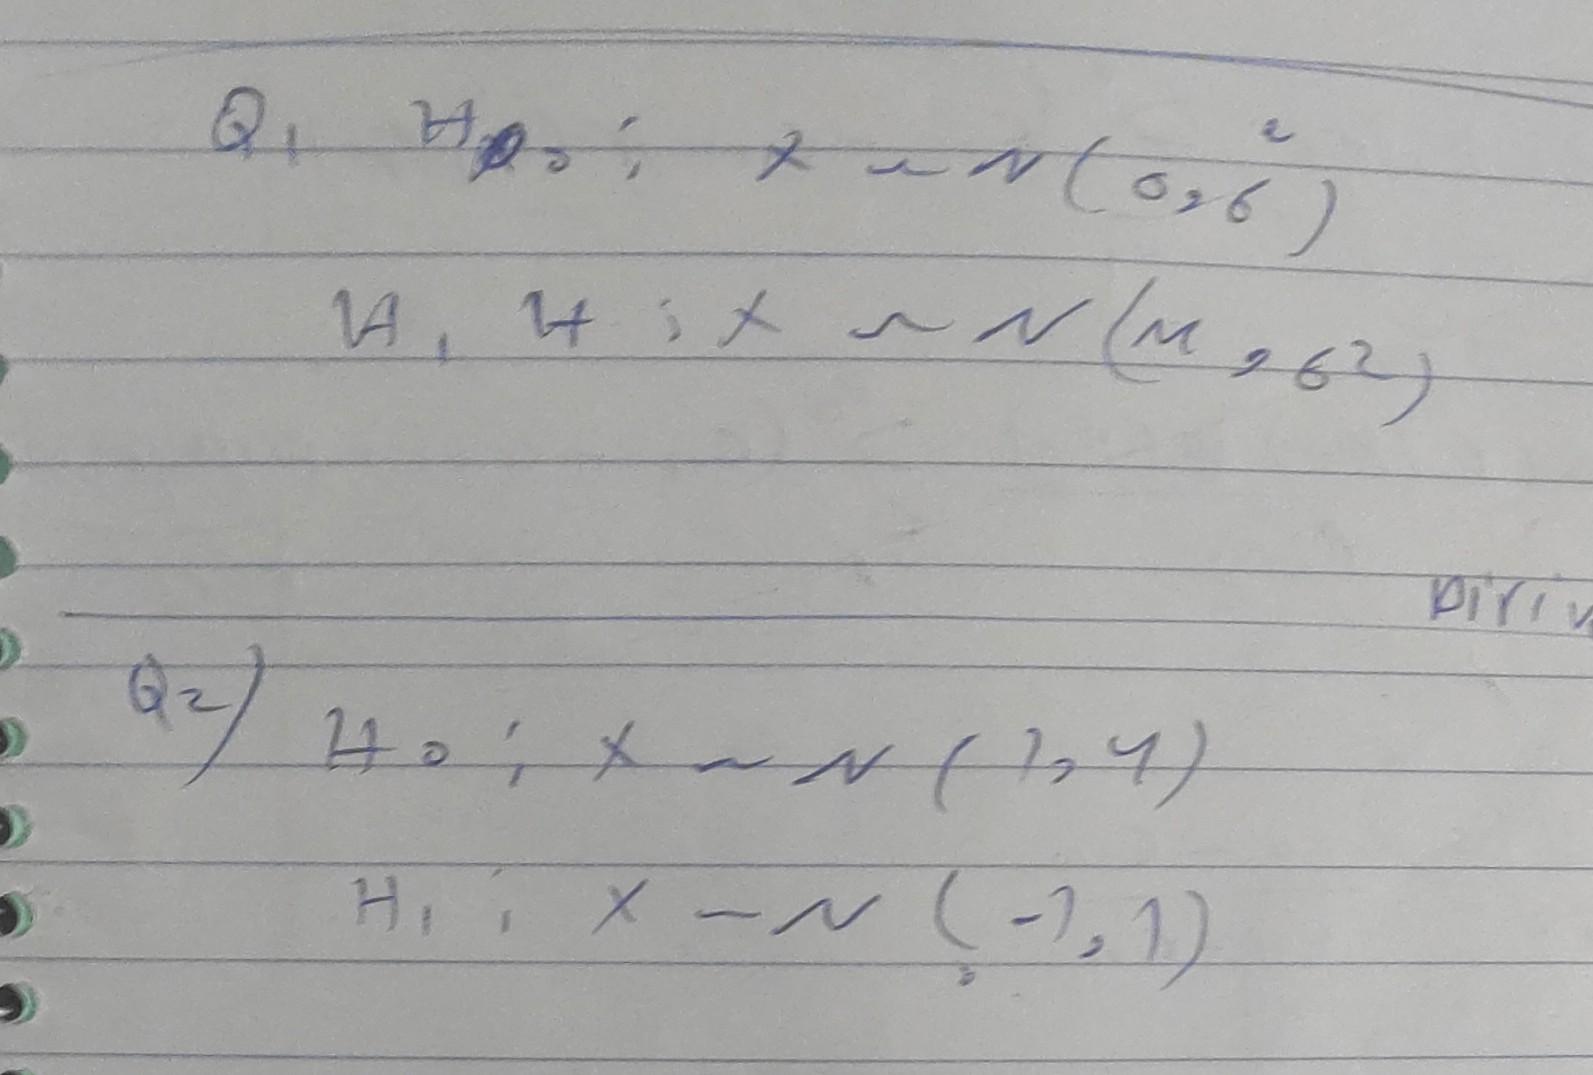 Q1 H0 ; X ~ N(0,6²)
H1 H ; X ~ N(M,6²)
Diriv
Q2) H0 ; X ~ N(1,4)
H1 ; X ~ N(-1,1)